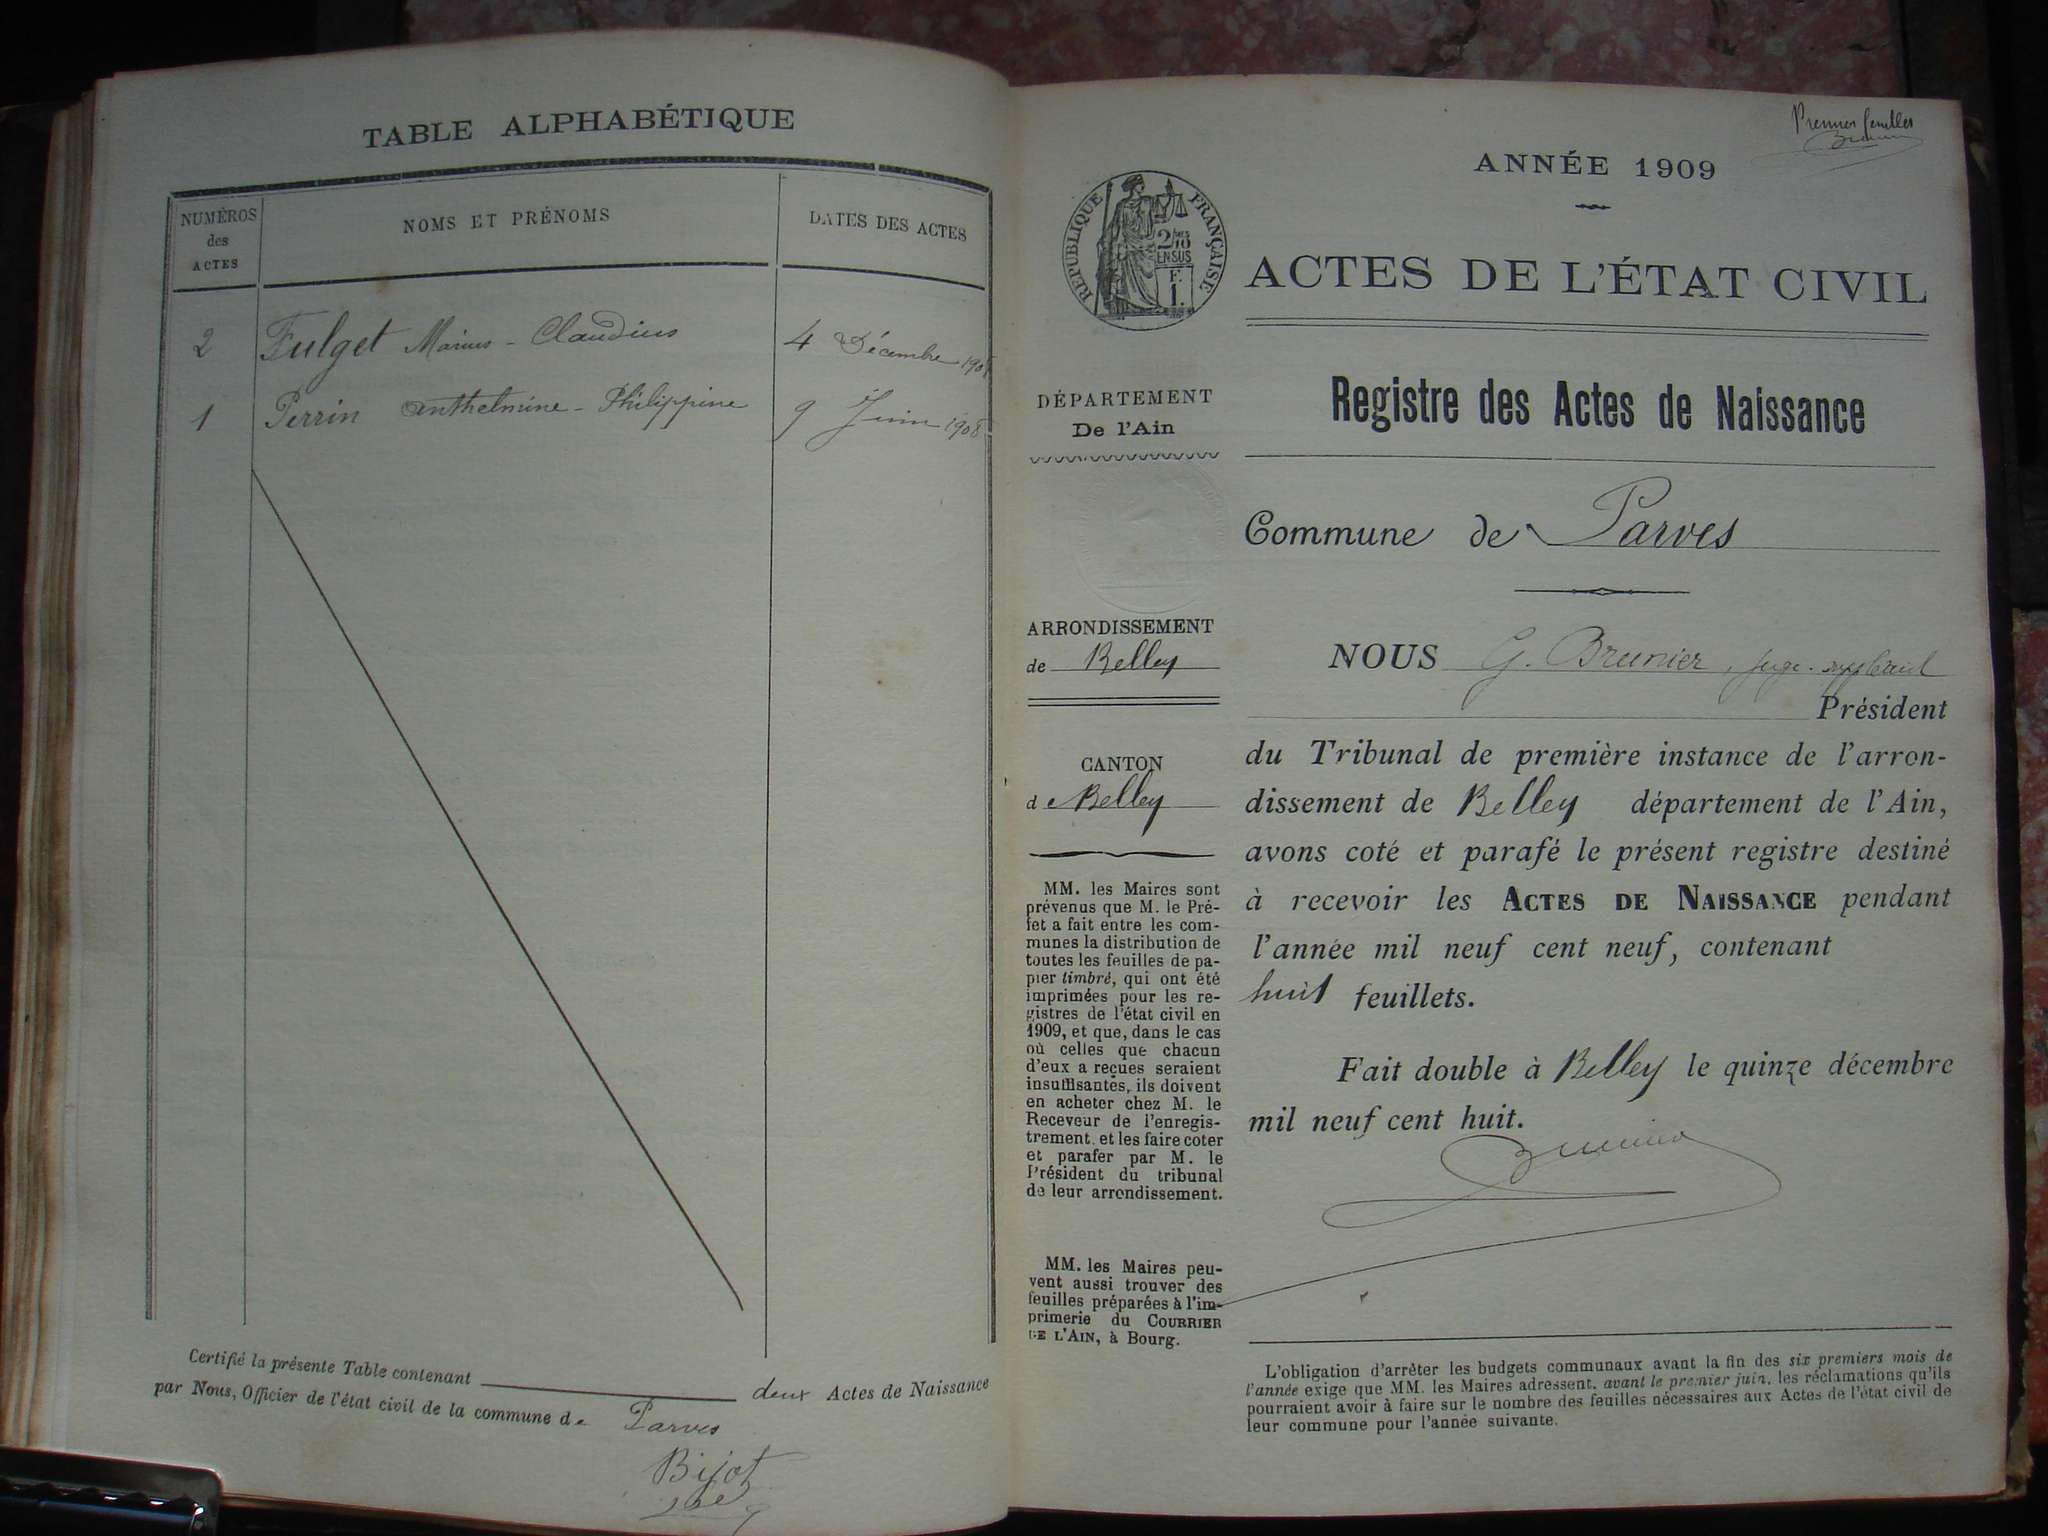 TABLE ALPHABÉTIQUE
NUMÉROS
des
ACTES
NOMS ET PRÉNOMS
DATES DES ACTES
2 Fulget Marius - Claudius 4 Décembre
1 Perrin Anthelmine - Philippine 9 Juin 1908
Certifié la présente Table contenant deux Actes de Naissance
par Nous, Officier de l'état civil de la commune de Parves
Bijot
Premier feuillet
ANNÉE 1909
RÉPUBLIQUE FRANÇAISE
2/10
EN SUS
F.
1.
ACTES DE L'ÉTAT CIVIL
DÉPARTEMENT
De l'Ain
Registre des Actes de Naissance
Commune de Parves
ARRONDISSEMENT
de Belley
CANTON
de Belley
MM. les Maires sont
prévenus que M. le Pré-
fet a fait entre les com-
munes la distribution de
toutes les feuilles de pa-
pier timbré, qui ont été
imprimées pour les re-
gistres de l'état civil en
1909, et que, dans le cas
où celles que chacun
d'eux a reçues seraient
insuffisantes, ils doivent
en acheter chez M. le
Receveur de l'enregis-
trement, et les faire coter
et parafer par M. le
Président du tribunal
de leur arrondissement.
MM. les Maires peu-
vent aussi trouver des
feuilles préparées à l'im-
primerie du COURRIER
DE L'AIN, à Bourg.
NOUS G. Brunier, juge-suppléant
Président
du Tribunal de première instance de l'arron-
dissement de Belley département de l'Ain,
avons coté et parafé le présent registre destiné
à recevoir les ACTES DE NAISSANCE pendant
l'année mil neuf cent neuf, contenant
huit feuillets.
Fait double à Belley le quinze décembre
mil neuf cent huit.
Brunier
L'obligation d'arrêter les budgets communaux avant la fin des six premiers mois de
l'année exige que MM. les Maires adressent, avant le premier juin, les réclamations qu'ils
pourraient avoir à faire sur le nombre des feuilles nécessaires aux Actes de l'état civil de
leur commune pour l'année suivante.